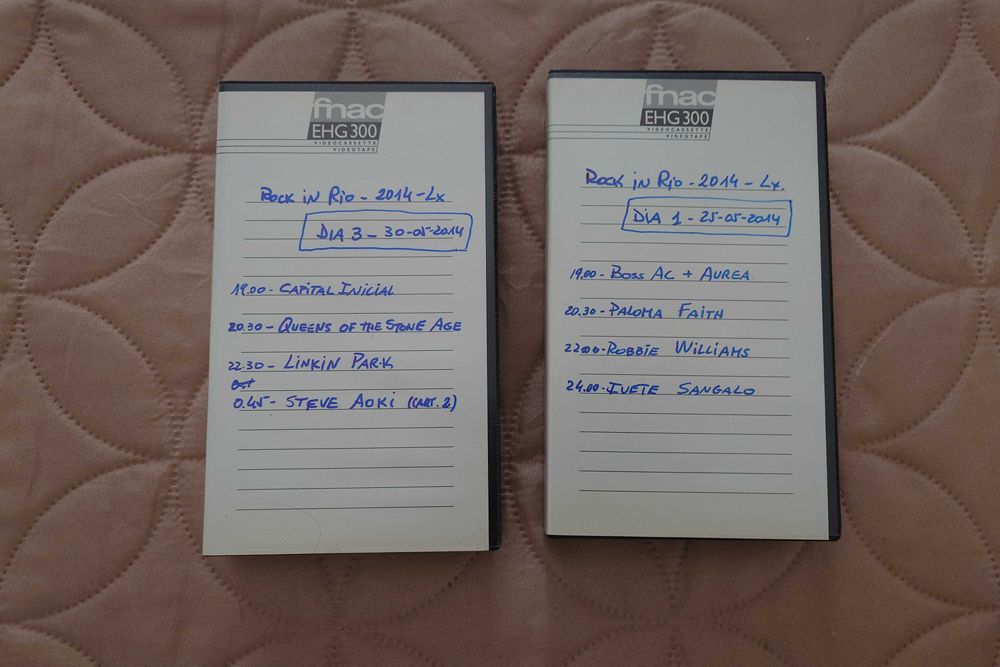 fnac
EHG 300
VIDEOCASSETTE
VIDEOTAPE
Rock in Rio - 2014 - Lx
DIA 3 - 30-05-2014
19.00 - CAPITAL INICIAL
20.30 - QUEENS OF THE STONE AGE
22.30 - LINKIN PARK
0.45 - STEVE AOKI
fnac
EHG 300
VIDEOCASSETTE
VIDEOTAPE
Rock in Rio - 2014 - Lx.
DIA 1 - 25-05-2014
19.00 - BOSS AC + AUREA
20.30 - PALOMA FAITH
22.00 - ROBBIE WILLIAMS
24.00 - IVETE SANGALO